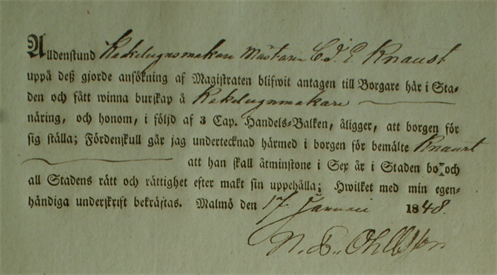 Alldenstund Kakelugnsmakare Mästaren C. E. Knaust
uppå deß gjorde ansökning af Magistraten blifwit antagen till Borgare här i Sta-
den och fått winna burskap å Kakelugnmakare
näring, och honom, i följd af 3 Cap. Handels-Balken, åligger, att borgen för
sig ställa; Fördenskull går jag undertecknad härmed i borgen för bemälte Knaust
att han skall åtminstone i Sex år i Staden bo och
all Stadens rätt och rättighet efter makt sin uppehålla; Hwilket med min egen-
händiga underskrift bekräftas. Malmö den 17 Januari 1848.
N. P. Ohlsson